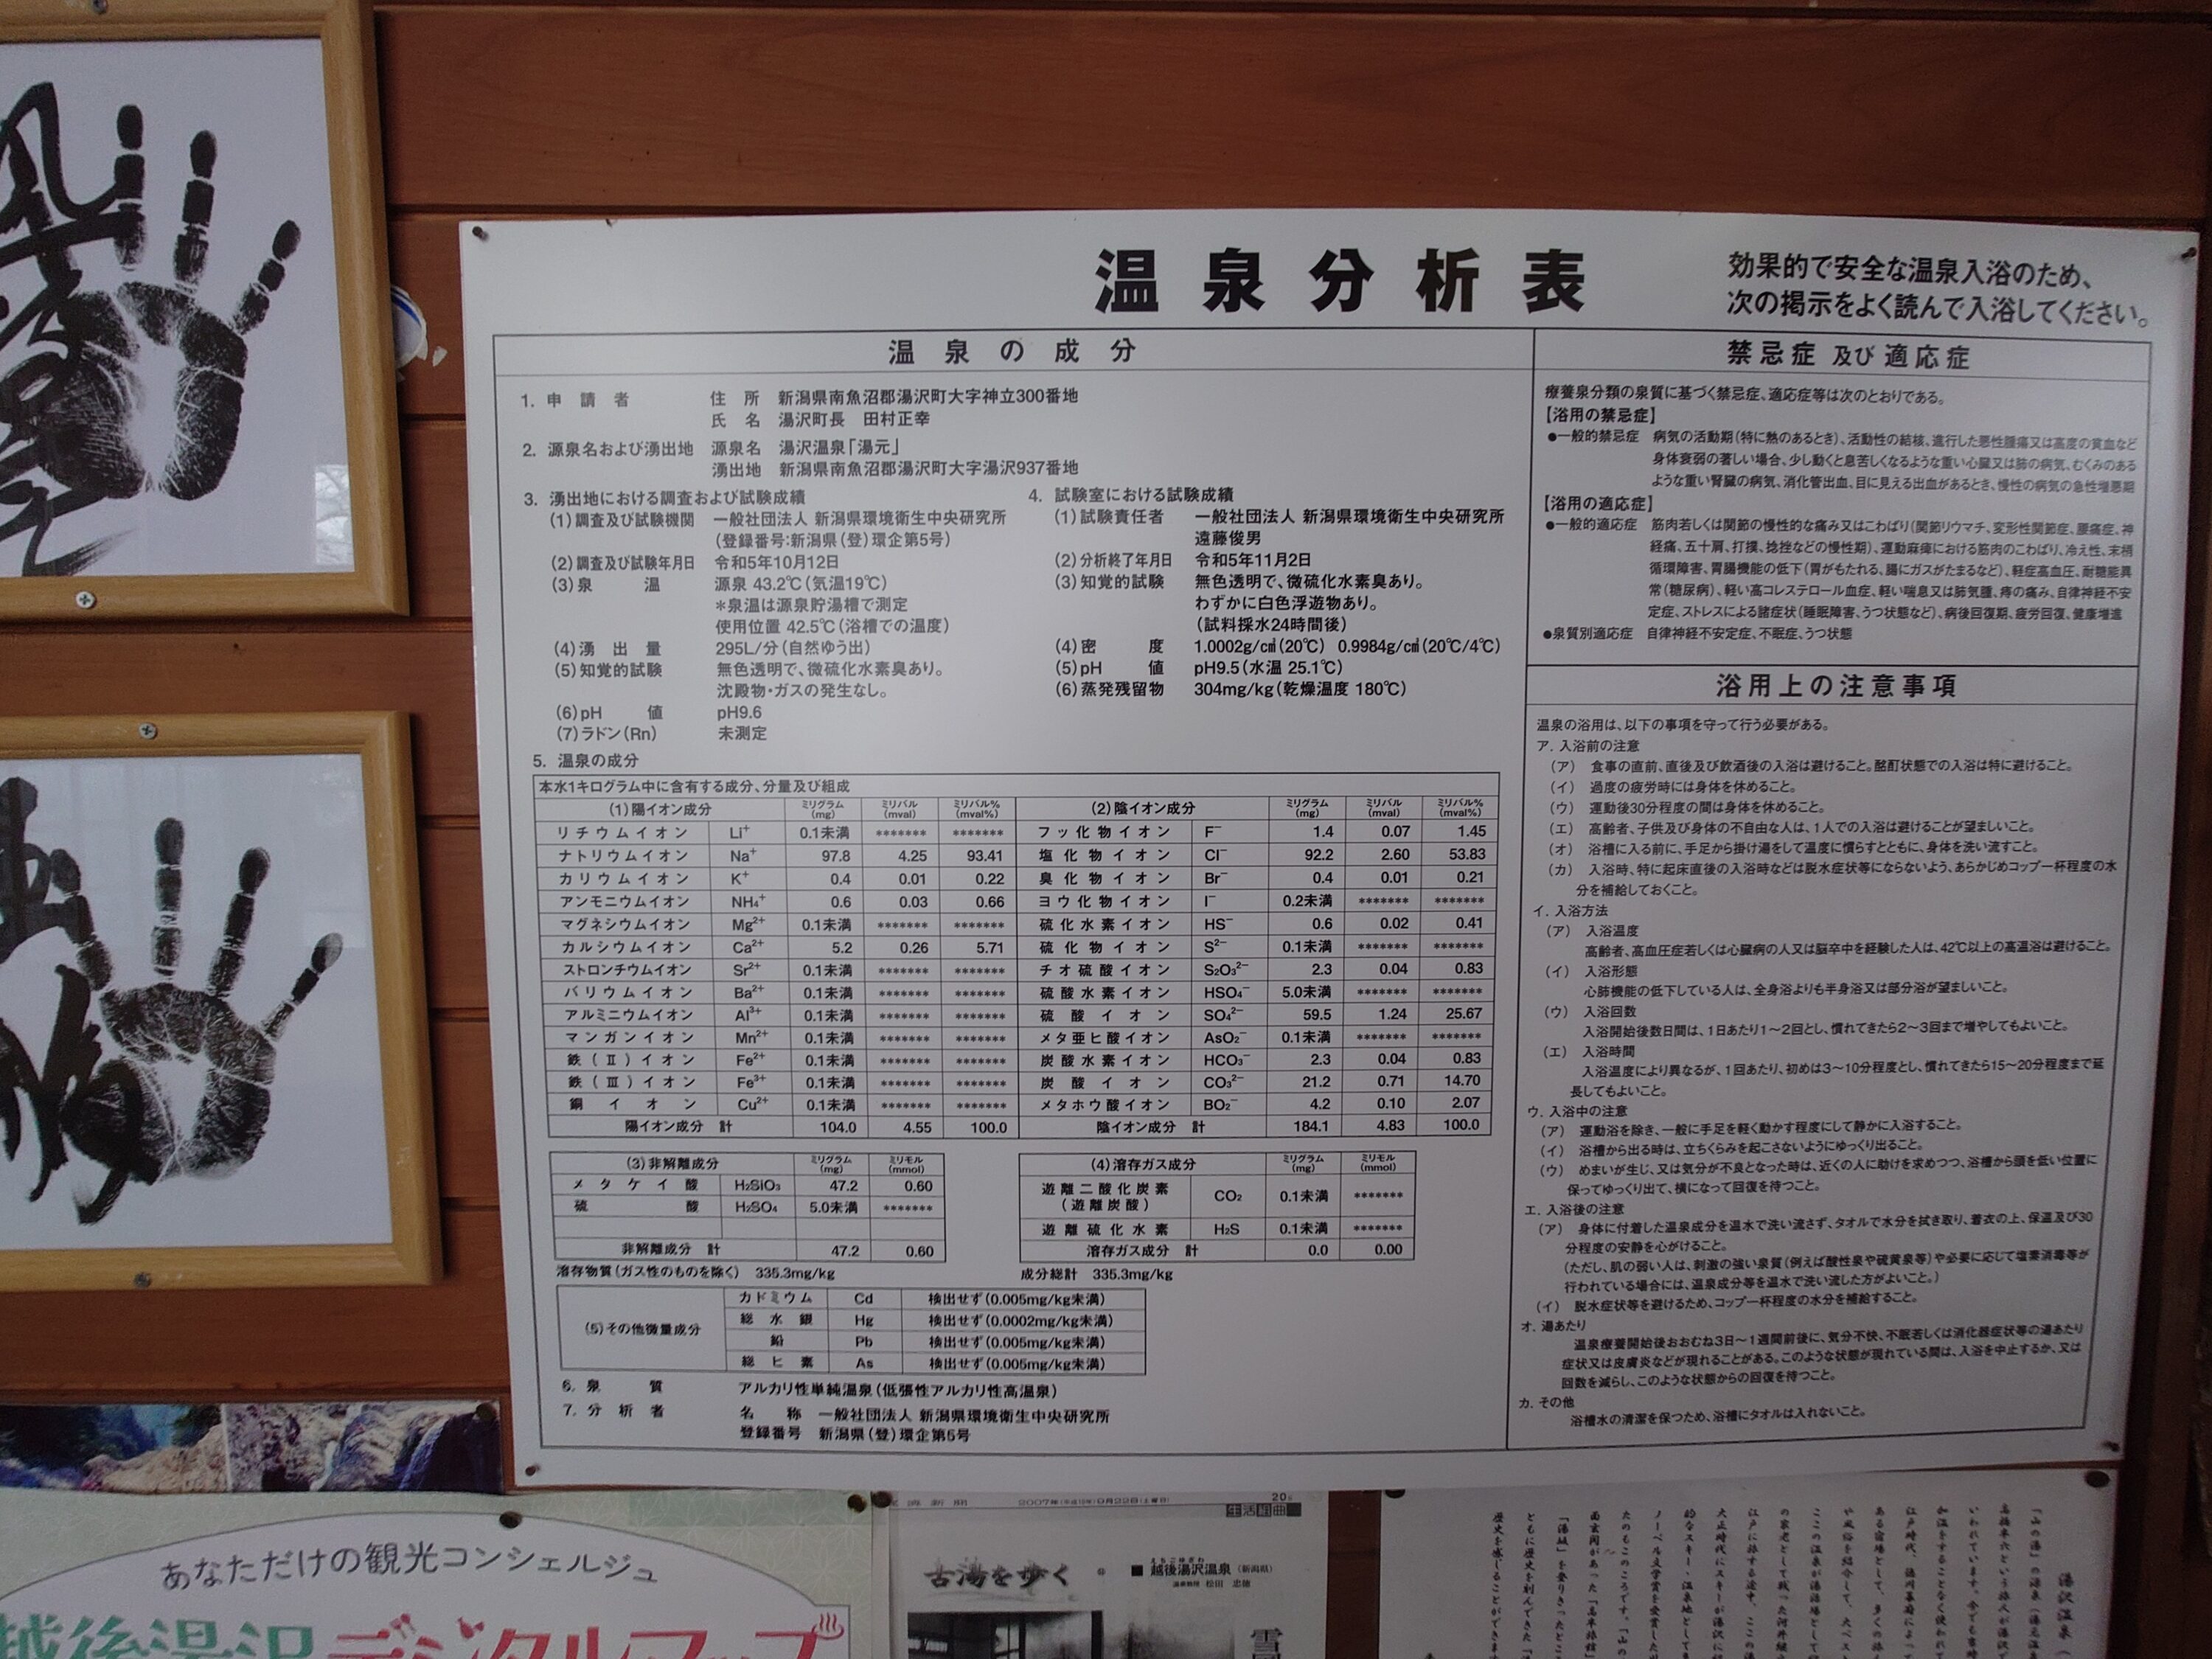 温泉分析表
効果的で安全な温泉入浴のため、
次の掲示をよく読んで入浴してください。
温泉の成分
1. 申請者 住所 新潟県南魚沼郡湯沢町大字神立300番地
氏名 湯沢町長 田村正幸
2. 源泉名および湧出地 源泉名 湯沢温泉「湯元」
湧出地 新潟県南魚沼郡湯沢町大字湯沢937番地
3. 湧出地における調査および試験成績
(1)調査及び試験機関 一般社団法人 新潟県環境衛生中央研究所
(登録番号:新潟県(登)環企第5号)
(2)調査及び試験年月日 令和5年10月12日
(3)泉温 源泉 43.2℃(気温19℃)
*泉温は源泉貯湯槽で測定
使用位置 42.5℃(浴槽での温度)
(4)湧出量 295L/分(自然ゆう出)
(5)知覚的試験 無色透明で、微硫化水素臭あり。
沈殿物・ガスの発生なし。
(6)pH値 pH9.6
(7)ラドン(Rn) 未測定
4. 試験室における試験成績
(1)試験責任者 一般社団法人 新潟県環境衛生中央研究所
遠藤俊男
(2)分析終了年月日 令和5年11月2日
(3)知覚的試験 無色透明で、微硫化水素臭あり。
わずかに白色浮遊物あり。
(試料採水24時間後)
(4)密度 1.0002g/c㎥(20℃) 0.9984g/c㎥(20℃/4℃)
(5)pH値 pH9.5(水温 25.1℃)
(6)蒸発残留物 304mg/kg(乾燥温度 180℃)
5. 温泉の成分
本水1キログラム中に含有する成分、分量及び組成
(1)陽イオン成分 ミリグラム(mg) ミリバル(mval) ミリバル%(mval%)
リチウムイオン Li⁺ 0.1未満 ******* *******
ナトリウムイオン Na⁺ 97.8 4.25 93.41
カリウムイオン K⁺ 0.4 0.01 0.22
アンモニウムイオン NH₄⁺ 0.6 0.03 0.66
マグネシウムイオン Mg²⁺ 0.1未満 ******* *******
カルシウムイオン Ca²⁺ 5.2 0.26 5.71
ストロンチウムイオン Sr²⁺ 0.1未満 ******* *******
バリウムイオン Ba²⁺ 0.1未満 ******* *******
アルミニウムイオン Al³⁺ 0.1未満 ******* *******
マンガンイオン Mn²⁺ 0.1未満 ******* *******
鉄(Ⅱ)イオン Fe²⁺ 0.1未満 ******* *******
鉄(Ⅲ)イオン Fe³⁺ 0.1未満 ******* *******
銅イオン Cu²⁺ 0.1未満 ******* *******
陽イオン成分 計 104.0 4.55 100.0
(2)陰イオン成分 ミリグラム(mg) ミリバル(mval) ミリバル%(mval%)
フッ化物イオン F⁻ 1.4 0.07 1.45
塩化物イオン Cl⁻ 92.2 2.60 53.83
臭化物イオン Br⁻ 0.4 0.01 0.21
ヨウ化物イオン I⁻ 0.2未満 ******* *******
硫化水素イオン HS⁻ 0.6 0.02 0.41
硫化物イオン S²⁻ 0.1未満 ******* *******
チオ硫酸イオン S₂O₃²⁻ 2.3 0.04 0.83
硫酸水素イオン HSO₄⁻ 5.0未満 ******* *******
硫酸イオン SO₄²⁻ 59.5 1.24 25.67
メタ亜ヒ酸イオン AsO₂⁻ 0.1未満 ******* *******
炭酸水素イオン HCO₃⁻ 2.3 0.04 0.83
炭酸イオン CO₃²⁻ 21.2 0.71 14.70
メタホウ酸イオン BO₂⁻ 4.2 0.10 2.07
陰イオン成分 計 184.1 4.83 100.0
(3)非解離成分 ミリグラム(mg) ミリモル(mmol)
メタケイ酸 H₂SiO₃ 47.2 0.60
硫酸 H₂SO₄ 5.0未満 *******
非解離成分 計 47.2 0.60
溶存物質(ガス性のものを除く) 335.3mg/kg
(4)溶存ガス成分 ミリグラム(mg) ミリモル(mmol)
遊離二酸化炭素(遊離炭酸) CO₂ 0.1未満 *******
遊離硫化水素 H₂S 0.1未満 *******
溶存ガス成分 計 0.0 0.00
成分総計 335.3mg/kg
(5)その他微量成分
カドミウム Cd 検出せず(0.005mg/kg未満)
総水銀 Hg 検出せず(0.0002mg/kg未満)
鉛 Pb 検出せず(0.005mg/kg未満)
総ヒ素 As 検出せず(0.005mg/kg未満)
6. 泉質 アルカリ性単純温泉(低張性アルカリ性高温泉)
7. 分析者 名称 一般社団法人 新潟県環境衛生中央研究所
登録番号 新潟県(登)環企第5号
禁忌症 及び 適応症
療養泉分類の泉質に基づく禁忌症、適応症等は次のとおりである。
【浴用の禁忌症】
●一般的禁忌症 病気の活動期(特に熱のあるとき)、活動性の結核、進行した悪性腫瘍又は高度の貧血など
身体衰弱の著しい場合、少し動くと息苦しくなるような重い心臓又は肺の病気、むくみのある
ような重い腎臓の病気、消化管出血、目に見える出血があるとき、慢性の病気の急性増悪期
【浴用の適応症】
●一般的適応症 筋肉若しくは関節の慢性的な痛み又はこわばり(関節リウマチ、変形性関節症、腰痛症、神
経痛、五十肩、打撲、捻挫などの慢性期)、運動麻痺における筋肉のこわばり、冷え性、末梢
循環障害、胃腸機能の低下(胃がもたれる、腸にガスがたまるなど)、軽症高血圧、耐糖能異
常(糖尿病)、軽い高コレステロール血症、軽い喘息又は肺気腫、痔の痛み、自律神経不安
定症、ストレスによる諸症状(睡眠障害、うつ状態など)、病後回復期、疲労回復、健康増進
●泉質別適応症 自律神経不安定症、不眠症、うつ状態
浴用上の注意事項
温泉の浴用は、以下の事項を守って行う必要がある。
ア. 入浴前の注意
(ア) 食事の直前、直後及び飲酒後の入浴は避けること。酩酊状態での入浴は特に避けること。
(イ) 過度の疲労時には身体を休めること。
(ウ) 運動後30分程度の間は身体を休めること。
(エ) 高齢者、子供及び身体の不自由な人は、1人での入浴は避けることが望ましいこと。
(オ) 浴槽に入る前に、手足から掛け湯をして温度に慣らすとともに、身体を洗い流すこと。
(カ) 入浴時、特に起床直後の入浴時などは脱水症状等にならないよう、あらかじめコップ一杯程度の水
分を補給しておくこと。
イ. 入浴方法
(ア) 入浴温度
高齢者、高血圧症若しくは心臓病の人又は脳卒中を経験した人は、42℃以上の高温浴は避けること。
(イ) 入浴形態
心肺機能の低下している人は、全身浴よりも半身浴又は部分浴が望ましいこと。
(ウ) 入浴回数
入浴開始後数日間は、1日あたり1〜2回とし、慣れてきたら2〜3回まで増やしてもよいこと。
(エ) 入浴時間
入浴温度により異なるが、1回あたり、初めは3〜10分程度とし、慣れてきたら15〜20分程度まで延
長してもよいこと。
ウ. 入浴中の注意
(ア) 運動浴を除き、一般に手足を軽く動かす程度にして静かに入浴すること。
(イ) 浴槽から出る時は、立ちくらみを起こさないようにゆっくり出ること。
(ウ) めまいが生じ、又は気分が不良となった時は、近くの人に助けを求めつつ、浴槽から頭を低い位置に
保ってゆっくり出て、横になって回復を待つこと。
エ. 入浴後の注意
(ア) 身体に付着した温泉成分を温水で洗い流さず、タオルで水分を拭き取り、着衣の上、保温及び30
分程度の安静を心がけること。
(ただし、肌の弱い人は、刺激の強い泉質(例えば酸性泉や硫黄泉等)や必要に応じて塩素消毒等が
行われている場合には、温泉成分等を温水で洗い流した方がよいこと。)
(イ) 脱水症状等を避けるため、コップ一杯程度の水分を補給すること。
オ. 湯あたり
温泉療養開始後おおむね3日〜1週間前後に、気分不快、不眠若しくは消化器症状等の湯あたり
症状又は皮膚炎などが現れることがある。このような状態が現れている間は、入浴を中止するか、又は
回数を減らし、このような状態からの回復を待つこと。
カ. その他
浴槽水の清潔を保つため、浴槽にタオルは入れないこと。
あなただけの観光コンシェルジュ
越後湯沢デジタルマップ
2007年(平成19年)9月22日(土曜日)
20
生活組曲
古湯を歩く
■越後湯沢温泉(新潟県)
えちごゆざわ
松田 忠徳
雪
湯沢温泉